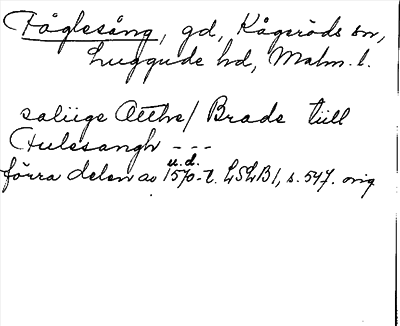 Fåglesång, gd, Kågeröds sn,
Luggude hd, Malm. l.
saliige Atthe/ Brade tiill
Fulesangh ---
u.d.
förra delen av 1570-t. LSLB1, s. 547. orig